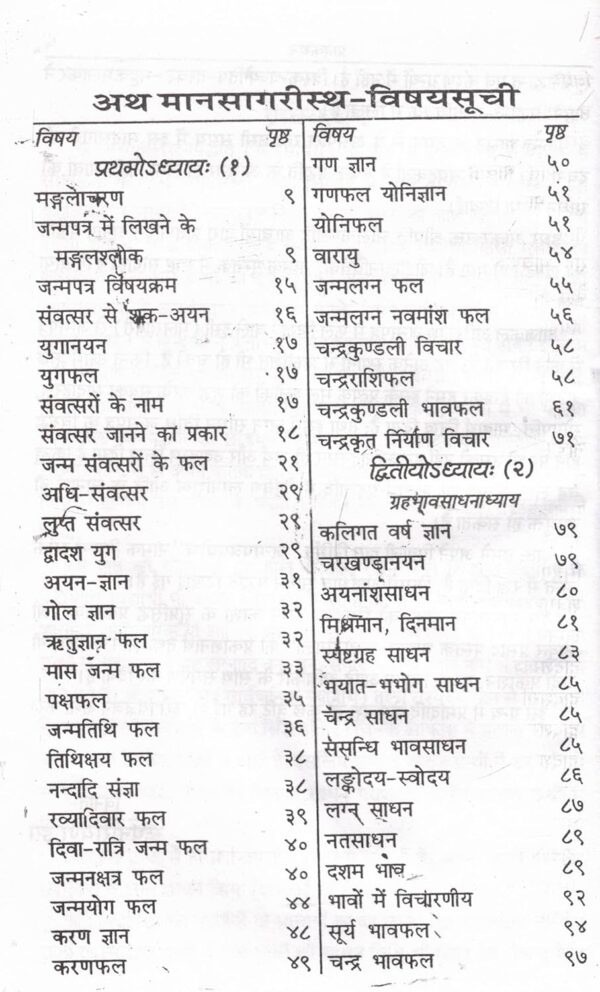 अथ मानसागरीस्थ-विषयसूची
विषय पृष्ठ
प्रथमोऽध्यायः (१)
मङ्गलाचरण ९
जन्मपत्र में लिखने के
मङ्गलश्लोक ९
जन्मपत्र विषयक्रम १५
संवत्सर से शक-अयन १६
युगानयन १७
युगफल १७
संवत्सरों के नाम १७
संवत्सर जानने का प्रकार १८
जन्म संवत्सरों के फल २१
अधि-संवत्सर २९
लुप्त संवत्सर २९
द्वादश युग २९
अयन-ज्ञान ३१
गोल ज्ञान ३२
ऋतुज्ञान फल ३२
मास जन्म फल ३३
पक्षफल ३५
जन्मतिथि फल ३६
तिथिक्षय फल ३८
नन्दादि संज्ञा ३८
रव्यादिवार फल ३९
दिवा-रात्रि जन्म फल ४०
जन्मनक्षत्र फल ४०
जन्मयोग फल ४४
करण ज्ञान ४८
करणफल ४९
विषय पृष्ठ
गण ज्ञान ५०
गणफल योनिज्ञान ५१
योनिफल ५१
वारायु ५४
जन्मलग्न फल ५५
जन्मलग्न नवमांश फल ५६
चन्द्रकुण्डली विचार ५८
चन्द्रराशिफल ५८
चन्द्रकुण्डली भावफल ६१
चन्द्रकृत निर्याण विचार ७१
द्वितीयोऽध्यायः (२)
ग्रहभावसाधनाध्याय
कलिगत वर्ष ज्ञान ७९
चरखण्डानयन ७९
अयनांशसाधन ८०
मिश्रमान, दिनमान ८१
ग्रह साधन ८३
भयात-भभोग साधन ८५
चन्द्र साधन ८५
ससन्धि भावसाधन ८५
लङ्कोदय-स्वोदय ८६
लग्न साधन ८७
नतसाधन ८९
दशम भाव ८९
भावों में विचारणीय ९२
सूर्य भावफल ९४
चन्द्र भावफल ९७